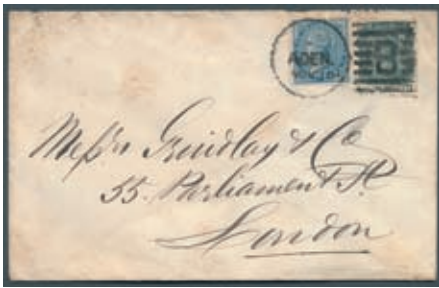 ADEN
B
Messrs Grindlay & Co
55. Parliament St
London